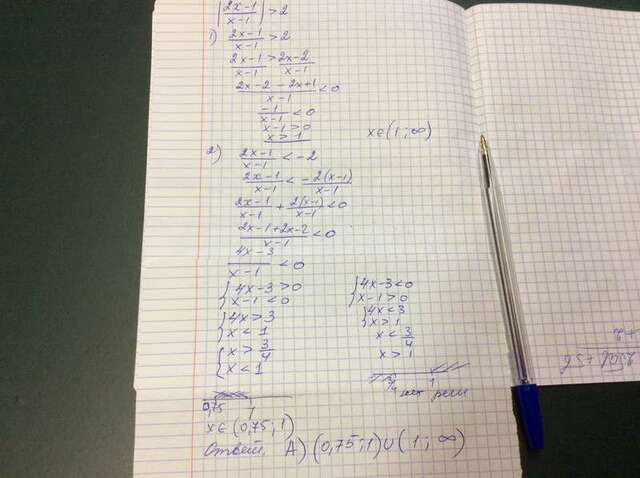 |2x-1/x-1| > 2
1) 2x-1/x-1 > 2
2x-1/x-1 > 2x-2/x-1
2x-2-2x+1/x-1 < 0
-1/x-1 < 0
x-1 > 0
x > 1
x∈(1;∞)
2) 2x-1/x-1 < -2
2x-1/x-1 < -2(x-1)/x-1
2x-1/x-1 + 2(x-1)/x-1 < 0
2x-1+2x-2/x-1 < 0
4x-3/x-1 < 0
{4x-3 > 0
x-1 < 0
{4x > 3
x < 1
{x > 3/4
x < 1
0,75 1
x∈(0,75;1)
{4x-3 < 0
x-1 > 0
{4x < 3
x > 1
x < 3/4
x > 1
3/4 1
нет реш
Ответ. А) (0,75;1)∪(1;∞)